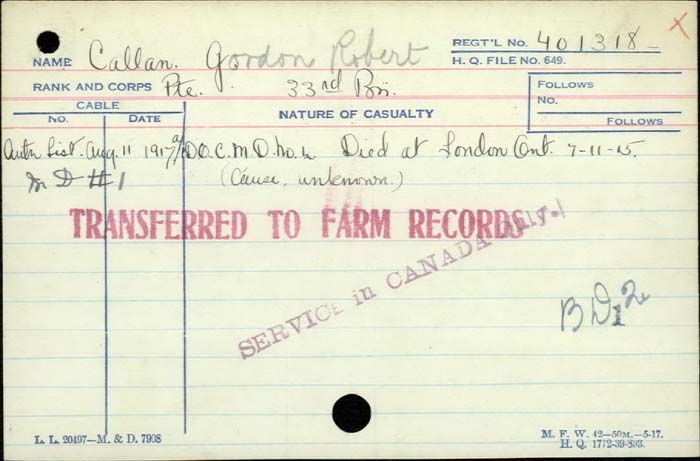 NAME Callan. Gordon Robert REGT'L No. 401318
H. Q. FILE No. 649.
RANK AND CORPS Pte. 33rd Bn. FOLLOWS
No.
FOLLOWS
CABLE
No. DATE
NATURE OF CASUALTY
List. Aug. 11 1917 D.O.C.M.D. No. Died at London Ont. 7-11-15.
M D #1 (Cause, unknown.)
TRANSFERRED TO FARM RECORDS
SERVICE in CANADA only.
B D 12
L. L. 20497—M. & D. 7908
M. F. W. 42—50M.—5-17.
H. Q. 1772-39-893.
X